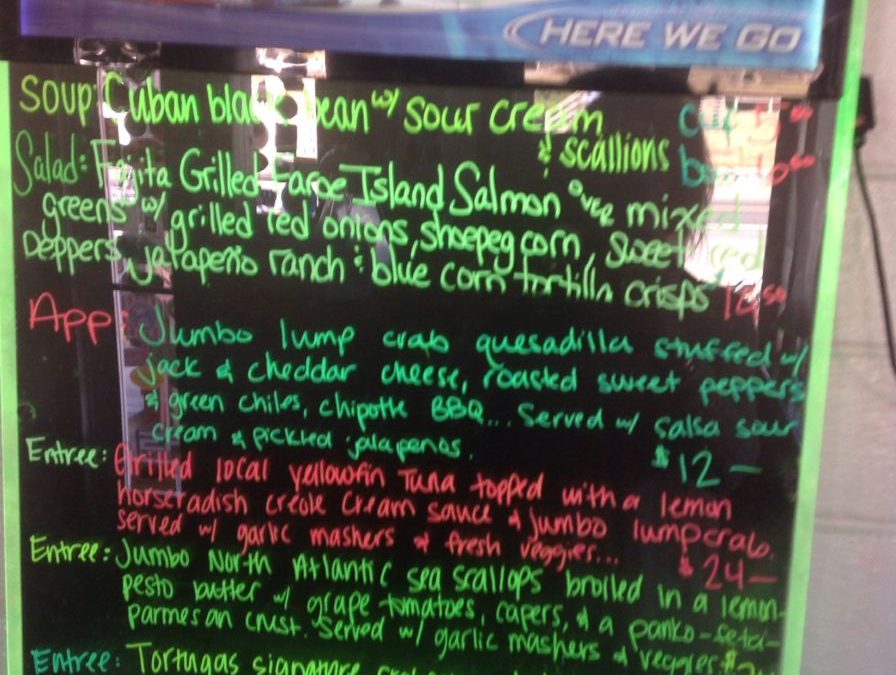 HERE WE GO
Soup: Cuban black bean w/ sour cream
& scallions
Salad: Fajita Grilled Faroe Island Salmon over mixed
greens w/ grilled red onions, shoepeg corn, sweet red
peppers, jalapeño ranch & blue corn tortilla crisps
App: Jumbo lump crab quesadilla stuffed w/
jack & cheddar cheese, roasted sweet peppers
& green chiles, chipotle BBQ... Served w/ salsa sour
cream & pickled jalapenos. $12—
Entree: Grilled local yellowfin Tuna topped with a lemon
horseradish creole cream sauce & jumbo lump crab.
served w/ garlic mashers & fresh veggies... $24—
Entree: Jumbo North Atlantic sea scallops broiled in a lemon-
pesto butter w/ grape tomatoes, capers, & a panko-feta-
parmesan crust. Served w/ garlic mashers & veggies.
Entree: Tortugas signature